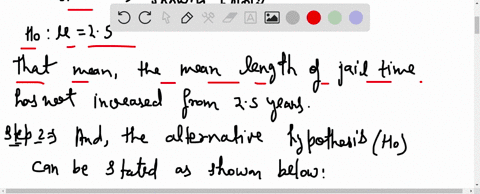 H₀ : μ = 2.5
That mean, the mean length of jail time
has not increased from 2.5 years.
Step 2⇒ And, the alternative hypothesis (H₀)
can be stated as shown below: